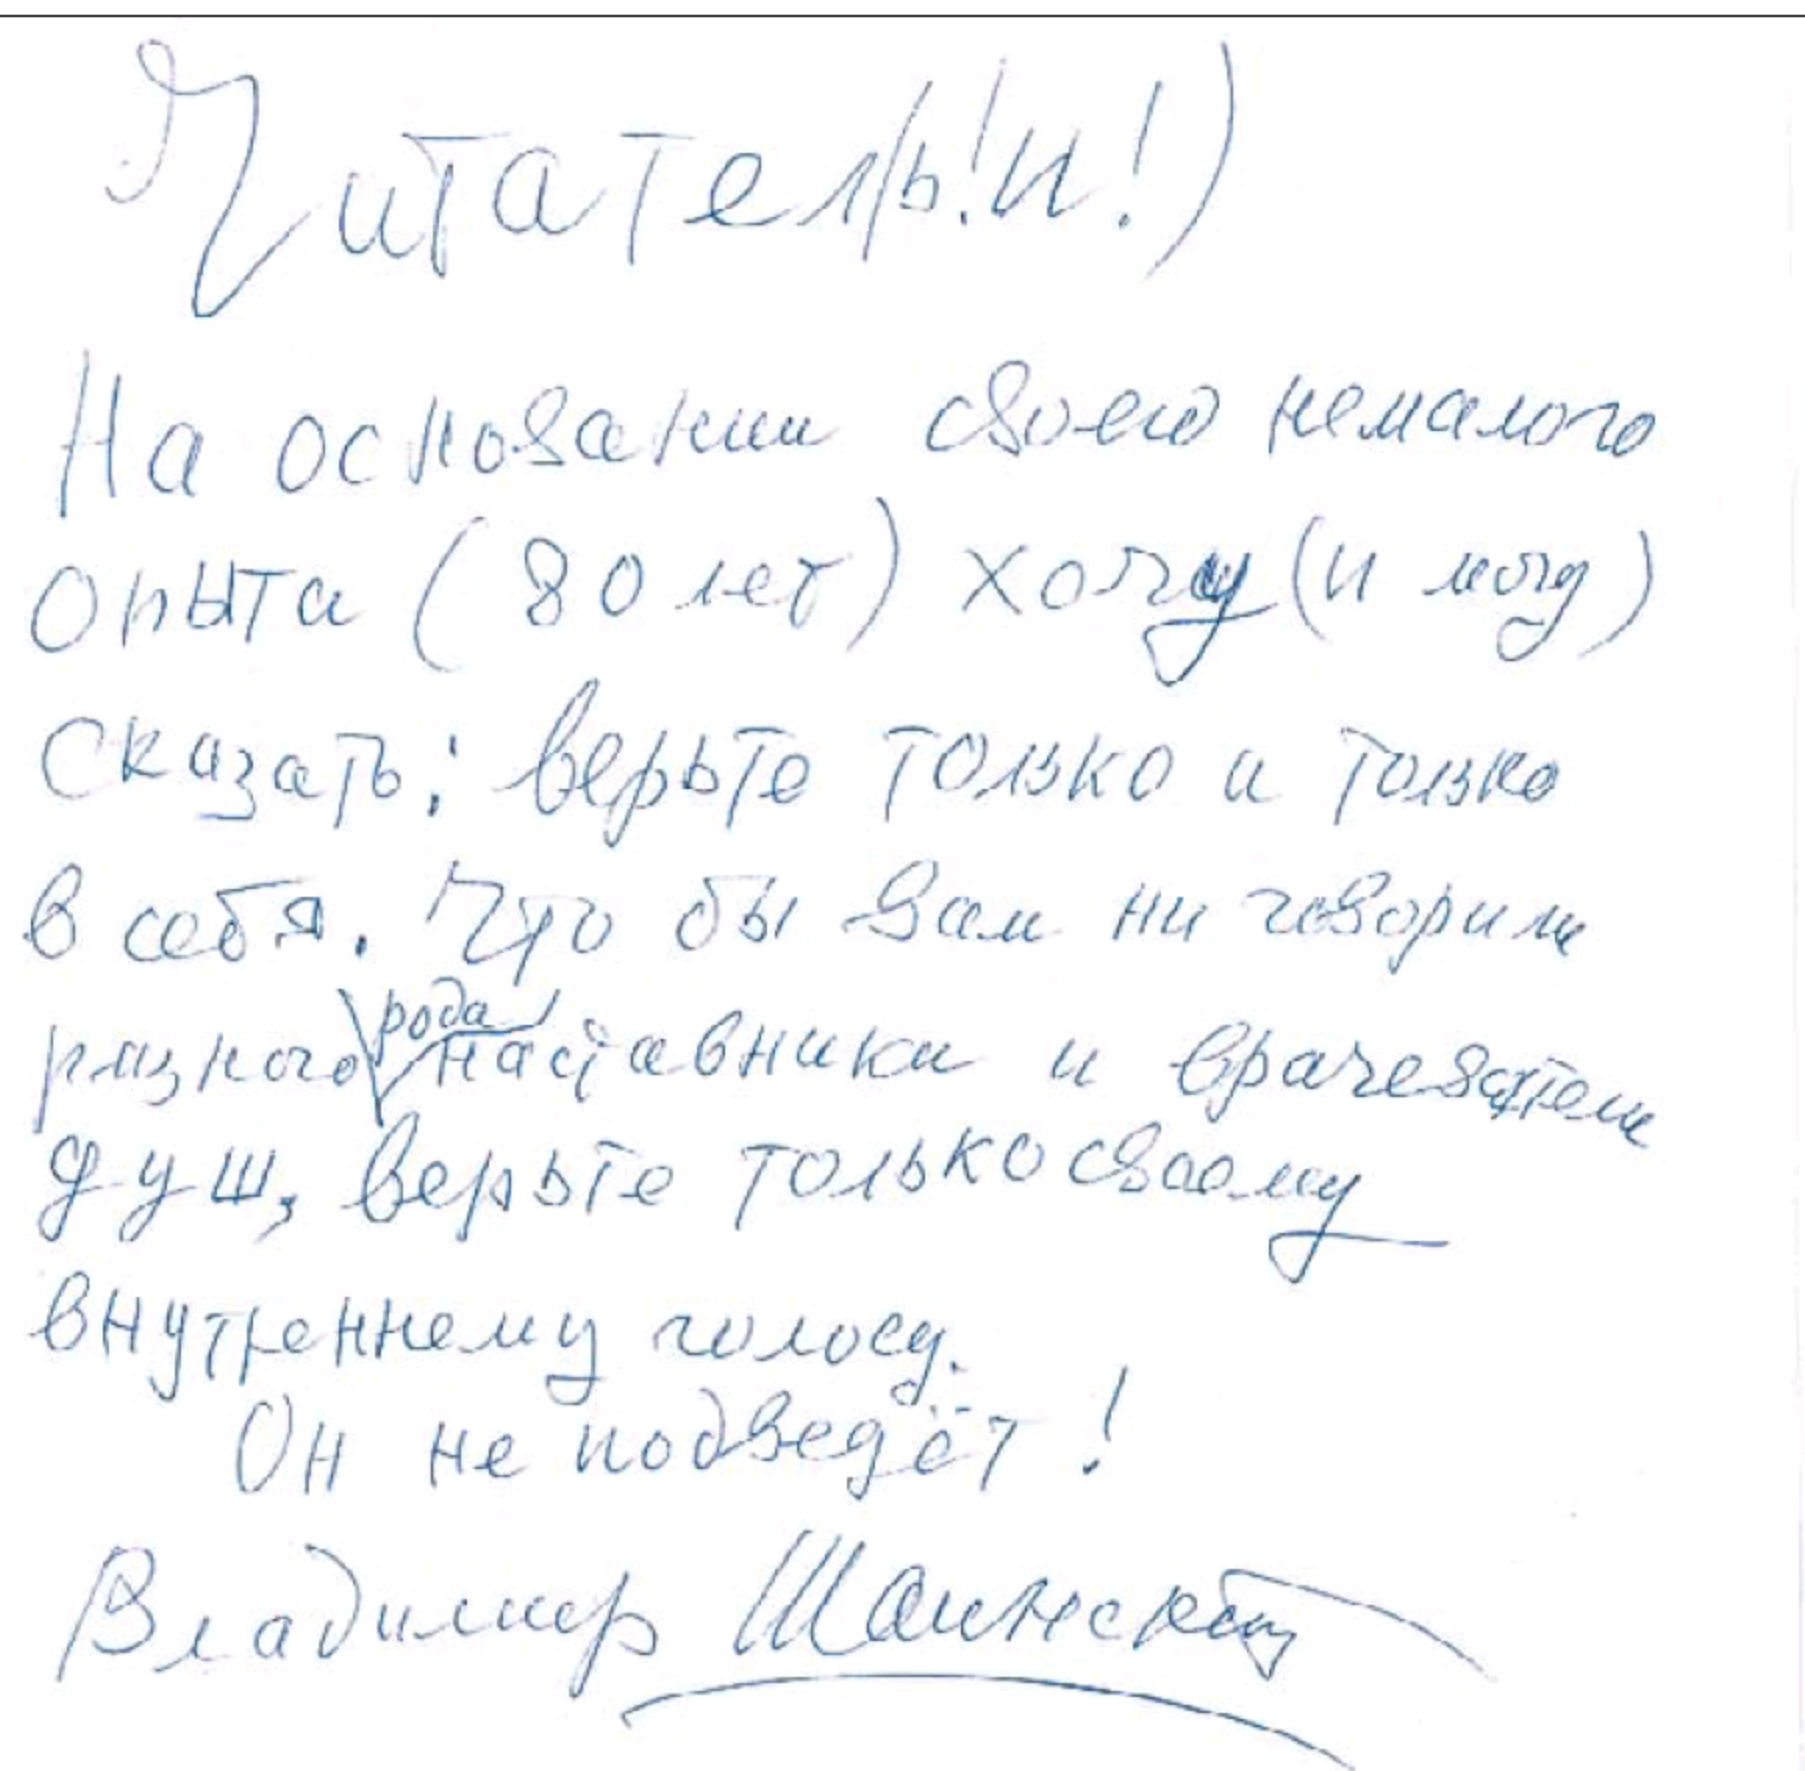 Читател(ь!и!)
На основании своего немалого
опыта (80 лет) хочу (и могу)
сказать: верьте только и только
в себя. Что бы вам ни говорили
разного рода наставники и врачеватели
душ, верьте только своему
внутреннему голосу.
Он не подведёт!
Владимир Шаинский